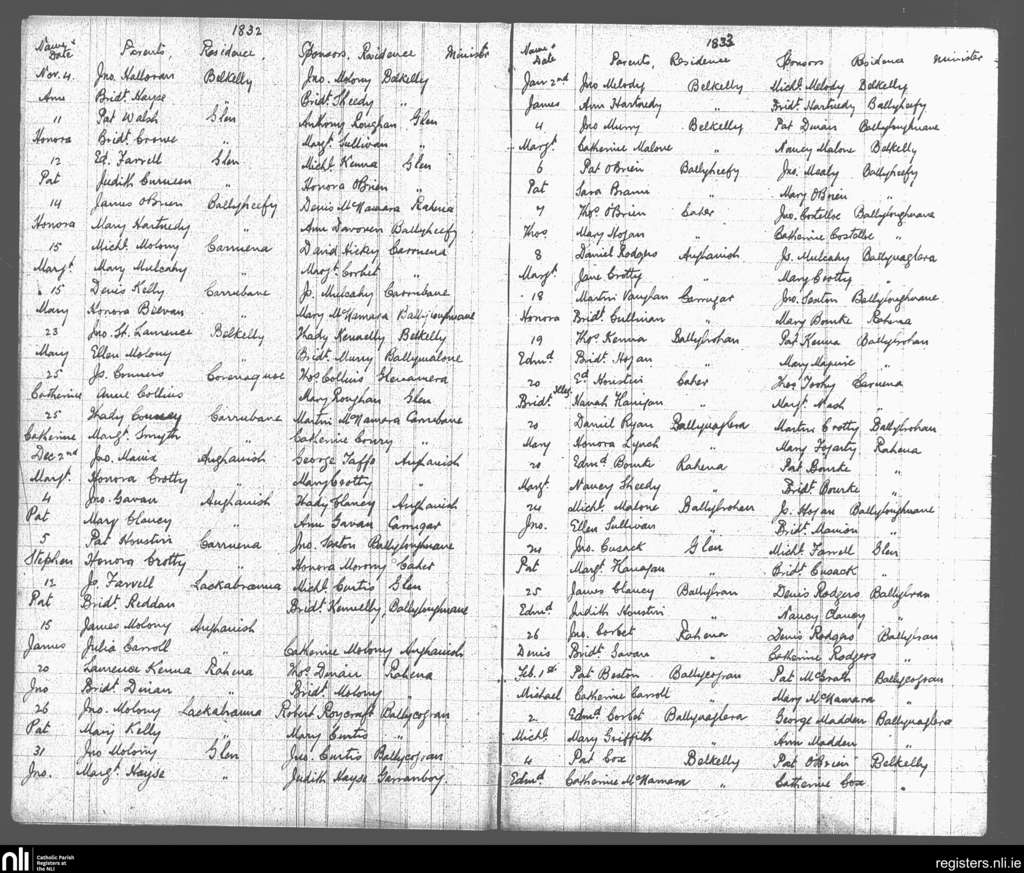 1832
Name & Date Parents, Residence, Sponsors, Residence Minister
Nov. 4. Jno. Halloran Belkelly Jno. Molony Belkelly
Ann Bridt. Hayse " Bridt. Sheedy "
11 Pat Walsh Glen Anthony Loughan Glen
Honora Bridt. Crowe " Margt. Sullivan "
12 Ed. Farrell Glen Michl. Kenna Glen
Pat Judith " Honora O'Brien "
14 James O'Brien Ballyheefy Denis McNamara Rahena
Honora Mary Hartnedy " Ann Davoren Ballyheefy
15 Michl. Molony Carruena David Hickey Carruena
Margt. Mary Mulcahy " Margt. Corbet "
15 Denis Kelly Carrubane Js. Mulcahy Carrubane
Mary Honora " Mary McNamara Ballyloughnane
23 Jno. St. Laurence Belkelly Thady Kennelly Belkelly
Mary Ellen Molony " Bridt. Murry Ballymalone
25 Js. Conners Thos. Collins Glenamera
Catherine Anne Collins Mary Roughan Glen
25 Thady Carrubane Martin McNamara Carrubane
Catherine Margt. Smyth " Catherine Conry "
Dec 2nd Jno. Maria Aughanish George Taffe Aughanish
Margt. Honora Crotty " Mary Crotty "
4 Jno. Gavan Aughanish Thady Clancy Aughanish
Pat Mary Clancy " Ann Gavan Carrugar
5 Pat Houstin Carruena Jno. Sexton Ballyloughnane
Stephen Honora Crotty " Honora Morony Caher
12 Js. Farrell Lackabranna Michl. Curtis Glen
Pat Bridt. Reddan Bridt. Kennelly Ballyloughnane
15 James Molony Aughanish
James Julia Carroll Catherine Molony Aughanish
20 Laurence Kenna Rahena Thos. Dinan Rahena
Jno Bridt. Dinan " Bridt. Molony "
26 Jno. Molony Lackabranna Robert Roycraft Ballycogran
Pat Mary Kelly Mary Curtis "
31 Jno Molony Glen Jno. Curtis Ballycogran
Jno. Margt. Hayse " Judith Hayse Garranboy.
1833
Name & Date Parents, Residence Sponsors Residence Minister
Jan 2nd Jno Melody Belkelly Michl. Melody Belkelly
James Ann Hartnedy " Bridt. Hartnedy Ballyheefy
4 Jno Murry Belkelly Pat Dinan Ballyloughnane
Margt. Catherine Malone " Nancy Malone Belkelly
6 Pat O'Brien Ballyheefy Jno. Mealy Ballyheefy
Pat Sara " Mary O'Brien "
7 Thos. O'Brien Caher Jno. Costelloe Ballyloughnane
Thos Mary Hogan " Catherine Costelloe "
8 Daniel Rodgers Aughanish Js. Mulcahy Ballynaglera
Margt. Jane Crotty " Mary Crotty "
18 Martin Vaughan Carrugar Jno. Sexton Ballyloughnane
Honora Bridt. Cullinan " Mary Bourke Rahena
19 Thos. Kenna Ballybrohan Pat Kenna Ballybrohan
Edmd. Bridt. Hogan " Mary Maguire "
20 Ed. Houstin Caher Thos. Toohy Carruena
Bridt. Illeg. Hanah Hanigan " Margt. Nash "
20 Daniel Ryan Ballynaglera Martin Crotty Ballybrohan
Mary Honora Lynch " Mary Fogarty Rahena
20 Edmd. Bourke Rahena Pat Bourke "
Margt. Nancy Sheedy " Bridt. Bourke "
24 Michl. Malone Ballybrohan Js. Hogan Ballyloughnane
Jno. Ellen Sullivan " Bridt. Manion "
24 Jno. Cusack Glen Michl. Farrell Glen
Pat Margt. Hanagan " Bridt. Cusack "
25 James Clancy Ballybran Denis Rodgers Ballybran
Edmd. Judith Houstin " Nancy Clancy "
26 Jno. Corbet Rahena Denis Rodgers Ballybran
Denis Bridt. Gavan " Catherine Rodgers "
Feb. 1st Pat Beston Ballycogran Pat McGrath Ballycogran
Michael Catherine Carroll " Mary McNamara "
2 Edmd. Corbet Ballynaglera George Madden Ballynaglera
Michl. Mary Griffith " Ann Madden "
4 Pat Cox Belkelly Pat O'Brien Belkelly
Edmd Catherine McNamara " Catherine Cox "
nli Catholic Parish Registers at the NLI
registers.nli.ie